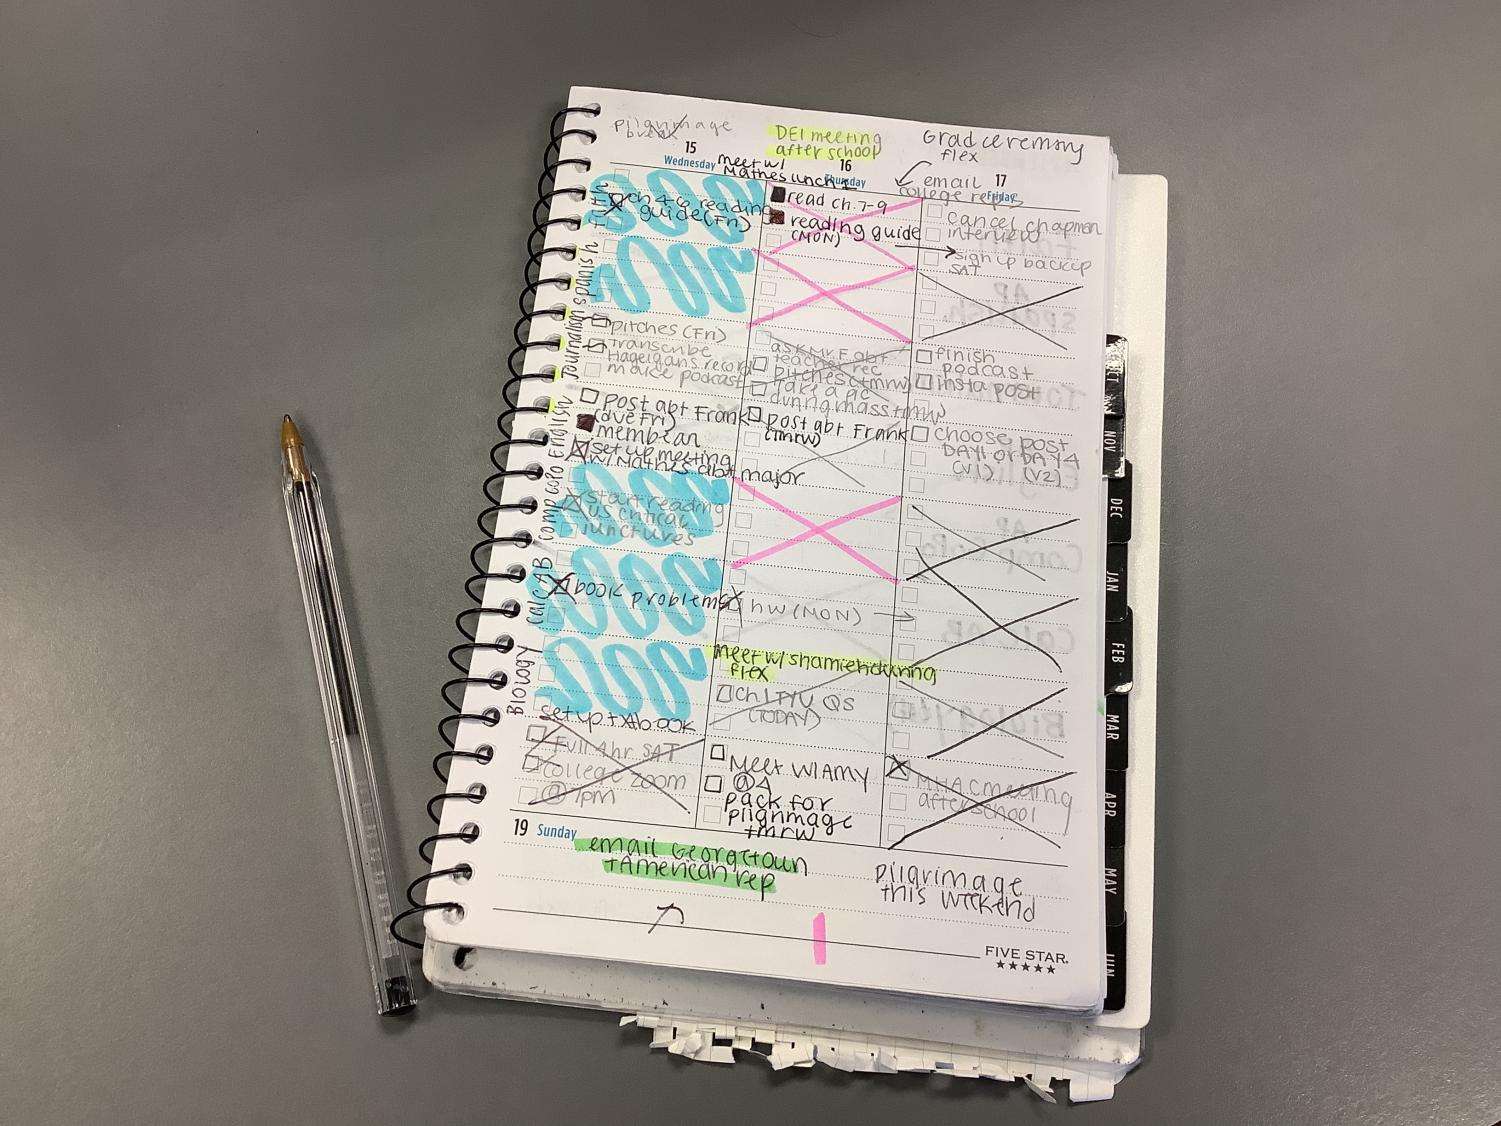 Pilgrimage
break
15
Wednesday
meet w/
Mathes lunch
DEI meeting
after school
16
Thursday
Grad ceremony
flex
email
college reps
17
Friday
Faith
ch 4-6 reading
guide (Fri)
read ch. 7-9
reading guide
(MON)
cancel chapman
interview
sign up backup
SAT
spanish
Journalism
pitches (Fri)
Transcribe
Hagelgans record
make podcast
ask Mr. F abt
teacher rec
pitches (tmrw)
take a pic
during mass tmrw
finish
podcast
insta post
English
post abt Frank
(due Fri)
membean
set up meeting
w/ Mathes abt major
post abt Frank
(tmrw)
choose post
DAY 1 or DAY 4
(v1) (v2)
comp gopo
start reading
US critical
junctures
calc AB
book problems
hw (MON)
Biology
set up txtbook
Meet w/ shamieh during
flex
Ch 1 TYU QS
(TODAY)
Full 4hr SAT
college zoom
@ 7pm
Meet w/ AMY
@ 4
pack for
pilgrimage
tmrw
MHAC meeting
after school
19 Sunday
email Georgetown
+ American rep
pilgrimage
this weekend
FIVE STAR
OCT
NOV
DEC
JAN
FEB
MAR
APR
MAY
JUN